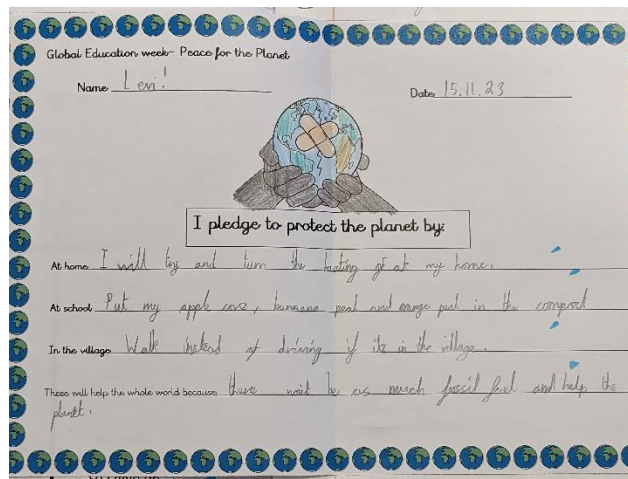 Global Education week- Peace for the Planet
Name Levi!
Date 15.11.23
I pledge to protect the planet by:
At home I will try and turn the heating of at my home.
At school Put my apple core, banana peal and orange peal in the compost
In the village Walk instead of driving if its in the village.
These will help the whole world because there wont be as much fossil fuel and help the
planet.